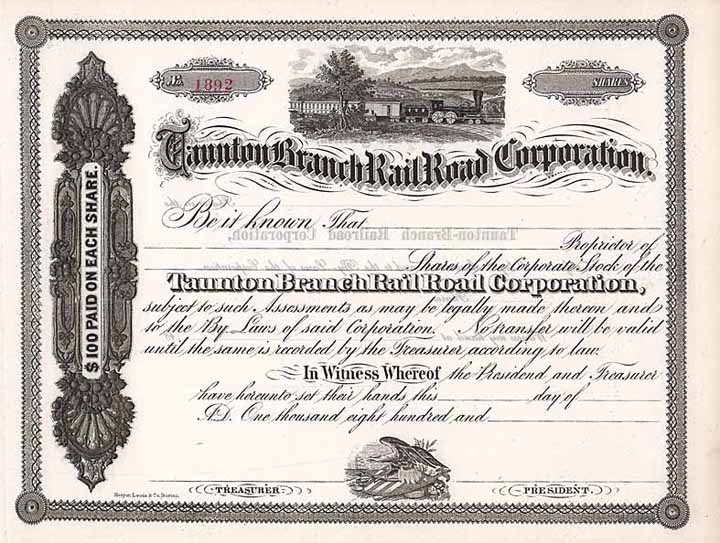 No. 1392
SHARES
Taunton Branch Rail Road Corporation.
$100 PAID ON EACH SHARE.
Be it known That
Taunton-Branch Railroad Corporation,
Proprietor of
Shares of the Corporate Stock of the
Taunton Branch Rail Road Corporation,
subject to such Assessments as may be legally made thereon and
to the By Laws of said Corporation. No transfer will be valid
until the same is recorded by the Treasurer according to law.
In Witness Whereof the President and Treasurer
have hereunto set their hands this day of
A.D. One thousand eight hundred and
TREASURER.
PRESIDENT.